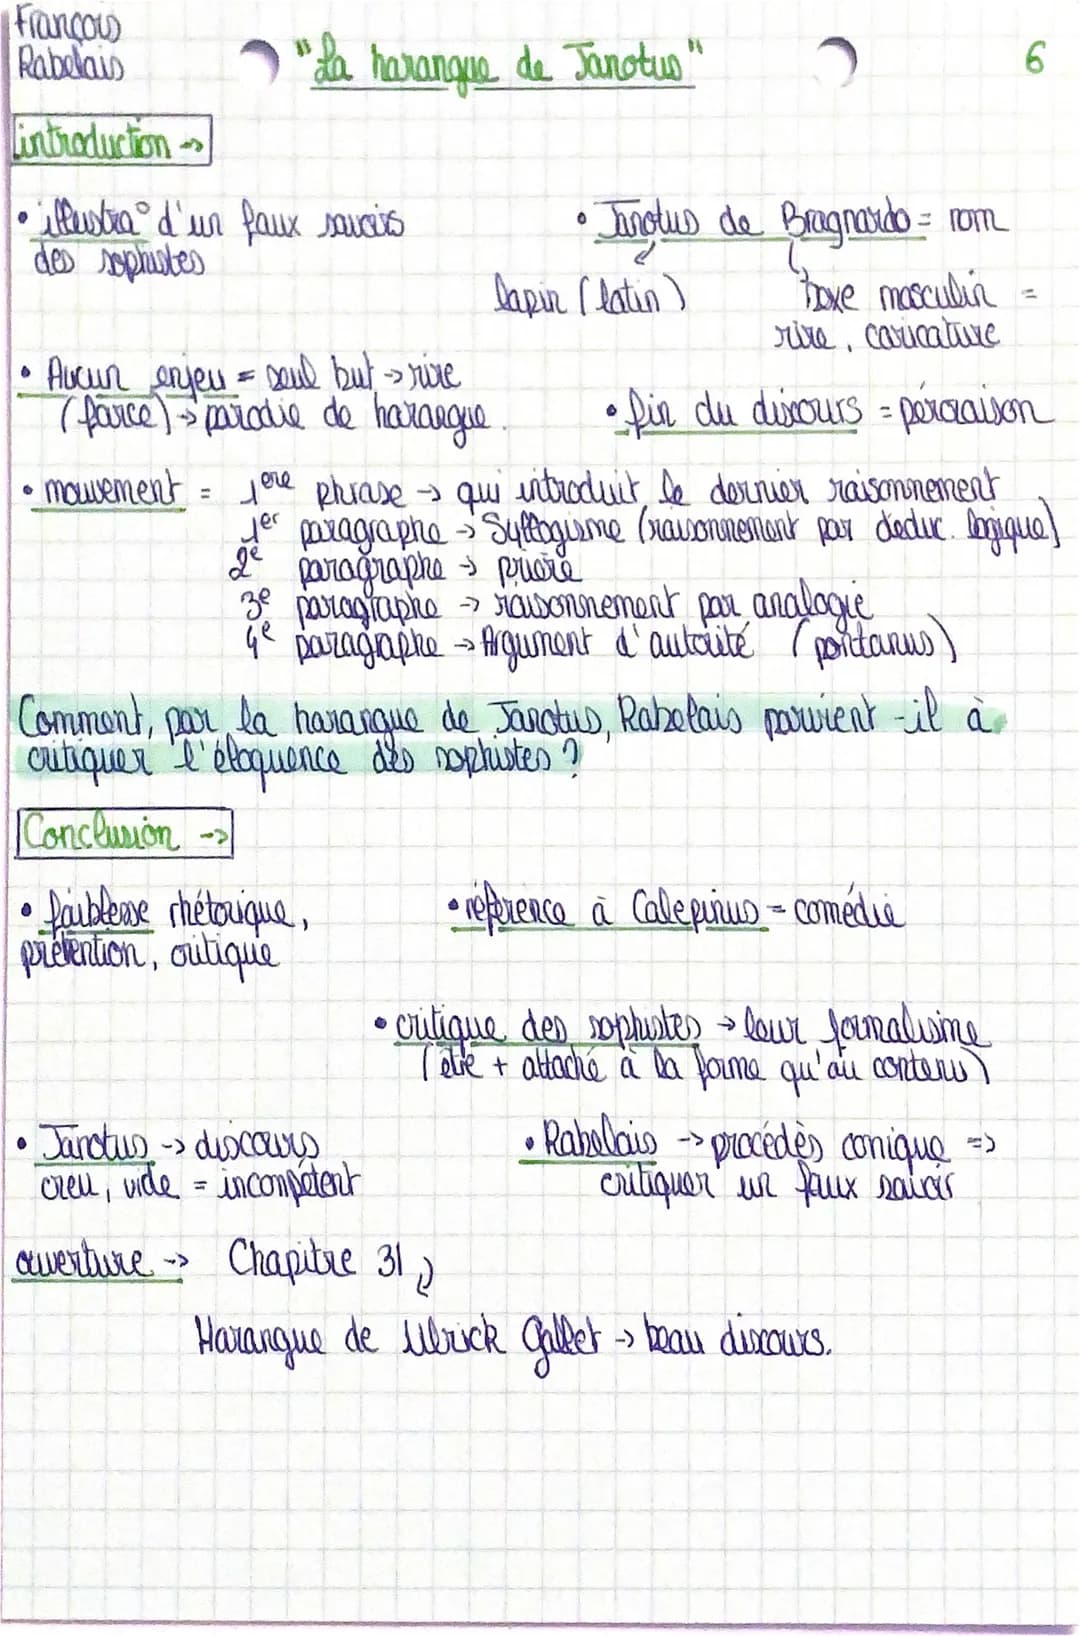 François
Rabelais
"La harangue de Janotus"
6
introduction ->
• illustra° d'un faux savoir
des sophistes
• Janotus de Bragnardo = nom
lapin (latin)
sexe masculin =
rire, caricature
• Aucun enjeu = seul but -> rire
(farce) -> parodie de harangue.
• fin du discours = péroraison
• mouvement = 1ere phrase -> qui introduit le dernier raisonnement
1er paragraphe -> Syllogisme (raisonnement par déduc. logique)
2e paragraphe -> prière
3e paragraphe -> raisonnement par analogie
4e paragraphe -> Argument d'autorité (pontanus)
Comment, par la harangue de Janotus, Rabelais parvient-il à
critiquer l'éloquence des sophistes ?
Conclusion ->
• faiblesse rhétorique,
prétention, critique
• référence à Calepinus = comédie
• critique des sophistes -> leur formalisme
(être + attaché à la forme qu'au contenu)
• Janotus -> discours
creu, vide = incompétent
• Rabelais -> procédès comique =>
critiquer un faux savoir
ouverture -> Chapitre 31
Harangue de Ulrick Gallet -> beau discours.